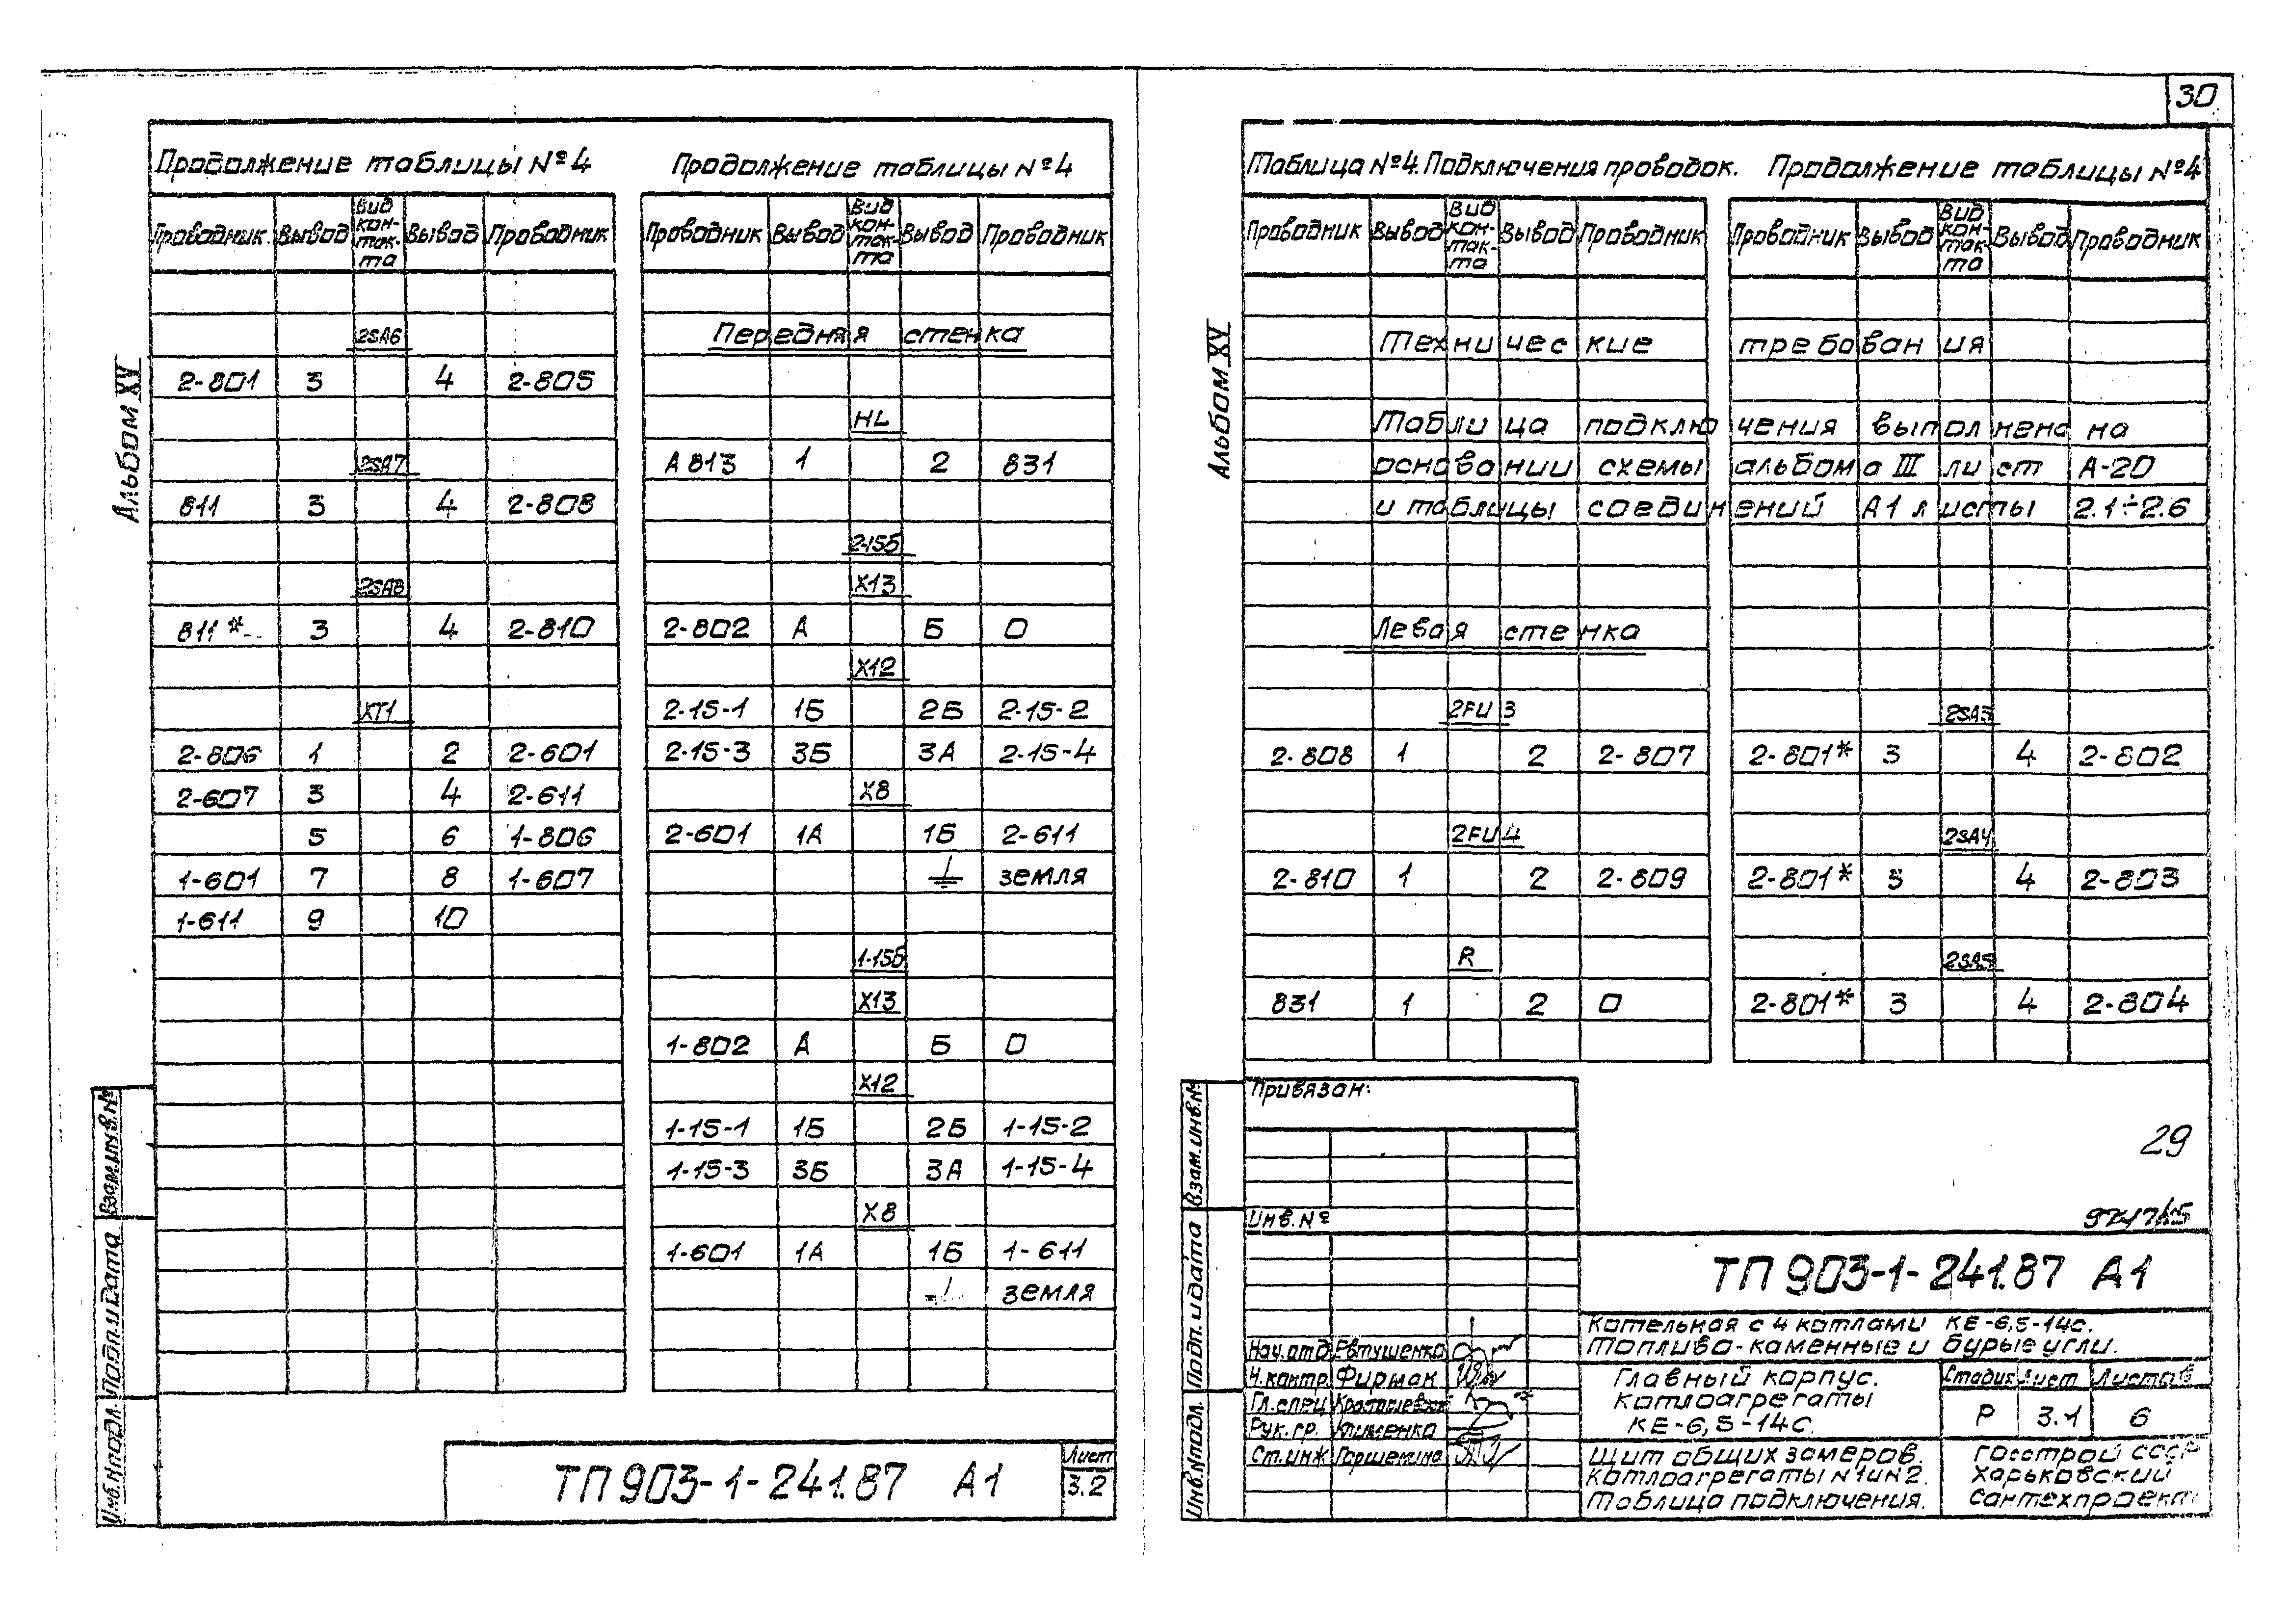 30
Продолжение таблицы №4
Проводник Вывод Вид кон-так-та Вывод Проводник
2SA6
2-801 3 4 2-805
2SA7
811 3 4 2-808
2SA8
811* 3 4 2-810
XT1
2-806 1 2 2-601
2-607 3 4 2-611
5 6 1-806
1-601 7 8 1-607
1-611 9 10
Продолжение таблицы №4
Проводник Вывод Вид кон-так-та Вывод Проводник
Передняя стенка
HL
А813 1 2 831
2-15б
X13
2-802 А Б 0
X12
2-15-1 1Б 2Б 2-15-2
2-15-3 3Б 3А 2-15-4
X8
2-601 1А 1Б 2-611
земля
1-15б
X13
1-802 А Б 0
X12
1-15-1 1Б 2Б 1-15-2
1-15-3 3Б 3А 1-15-4
X8
1-601 1А 1Б 1-611
земля
Альбом XV
Взам.инв.№
Подп. и дата
Инв.№подл.
ТП 903-1-241.87 А1
Лист
3.2
Таблица №4. Подключения проводок. Продолжение таблицы №4
Проводник Вывод Вид кон-так-та Вывод Проводник Проводник Вывод Вид кон-так-та Вывод Проводник
Технические требования
Таблица подключения выполнена на
основании схемы альбома III лист А-20
и таблицы соединений А1 листы 2.1÷2.6
Левая стенка
2FU3 2SA3
2-808 1 2 2-807 2-801* 3 4 2-802
2FU4 2SA4
2-810 1 2 2-809 2-801* 3 4 2-803
R 2SA5
831 1 2 0 2-801* 3 4 2-804
Альбом XV
Взам.инв.№
Подп. и дата
Инв.№подл.
Привязан:
Инв.№
29
ТП 903-1-241.87 А1
Котельная с 4 котлами КЕ-6,5-14с.
Топливо-каменные и бурые угли.
Нач.отд. Евтушенко
Н.контр. Фирман
Гл.спец
Рук.гр. Клименко
Ст.инж Горшенина
Главный корпус.
Котлоагрегаты
КЕ-6,5-14С.
Стадия Лист Листов
Р 3.1 6
Щит общих замеров.
Котлоагрегаты №1и№2.
Таблица подключения.
Госстрой СССР
Харьковский
Сантехпроект